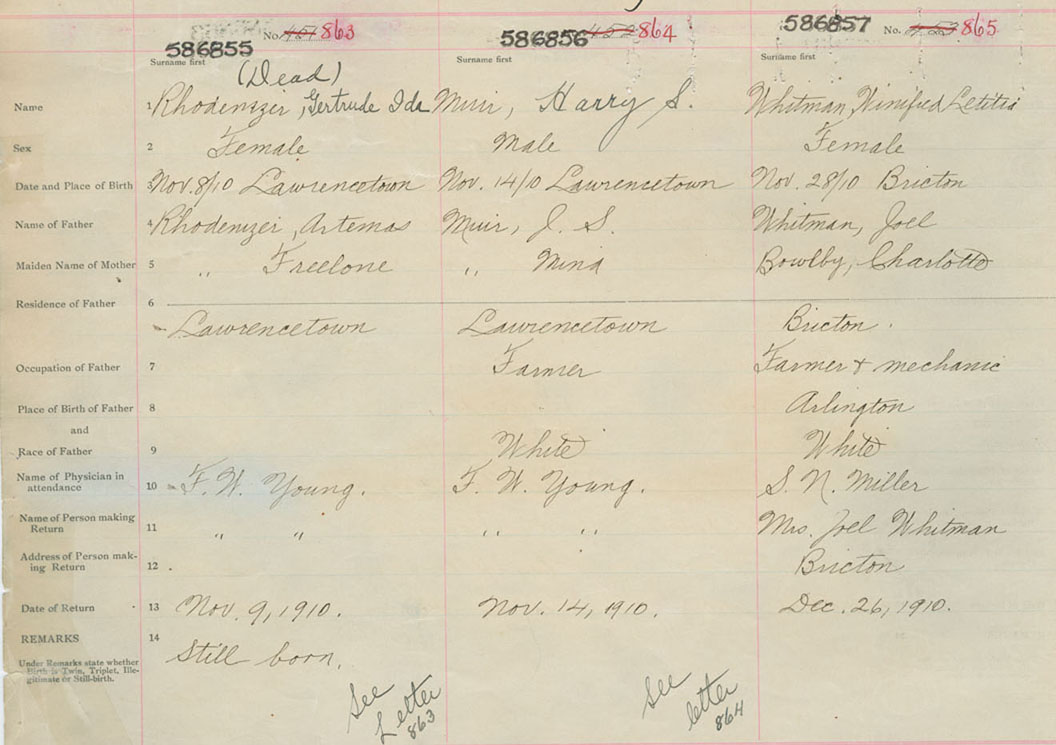 586855 No. 457 863
586856 452 864
586857 No. 453 865
Surname first Surname first Surname first
(Dead)
Name 1 Rhodenizer, Gertrude Ida Muir, Harry S. Whitman, Winifred Letitia
Sex 2 Female Male Female
Date and Place of Birth 3 Nov. 8/10 Lawrencetown Nov. 14/10 Lawrencetown Nov. 28/10 Bricton
Name of Father 4 Rhodenizer, Artemas Muir, J. S. Whitman, Joel
Maiden Name of Mother 5 " Freelone " Mina Bowlby, Charlotte
Residence of Father 6
Lawrencetown Lawrencetown Bricton.
Occupation of Father 7 Farmer Farmer & mechanic
Place of Birth of Father 8 Arlington
and
Race of Father 9 White White
Name of Physician in
attendance 10 F. W. Young. F. W. Young. S. N. Miller
Name of Person making
Return 11 " " " " Mrs. Joel Whitman
Address of Person mak-
ing Return 12 Bricton
Date of Return 13 Nov. 9, 1910. Nov. 14, 1910. Dec. 26, 1910.
REMARKS 14
Still born.
Under Remarks state whether
Birth is Twin, Triplet, Ille-
gitimate or Still-birth.
See
Letter
863
See
letter
864